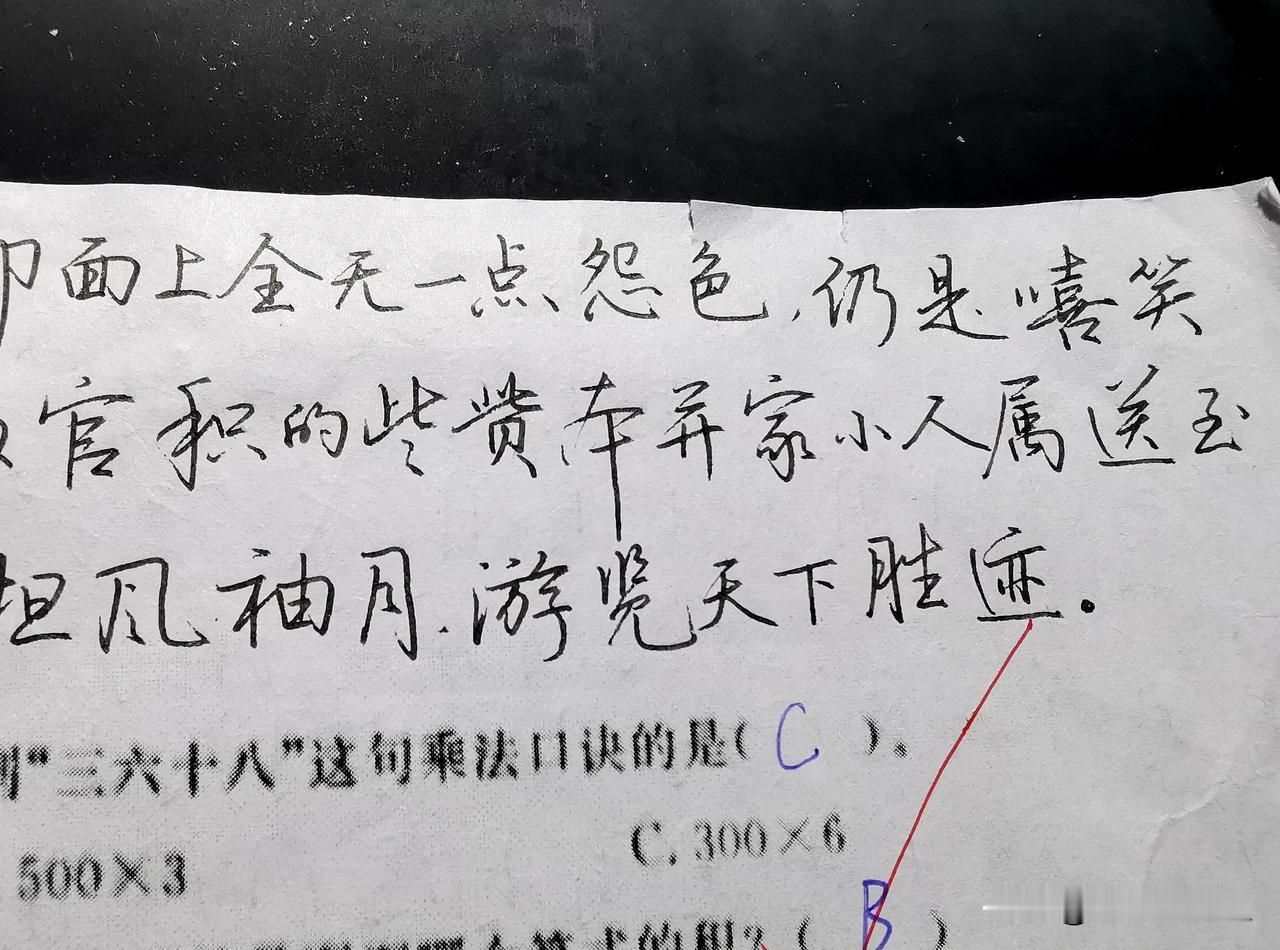 面上全无一点怨色,仍是嘻笑
官积的些赀本并家小人属送至
坦风袖月.游览天下胜迹.
“三六十八”这句乘法口诀的是( C )。
500×3 C. 300×6
( B )